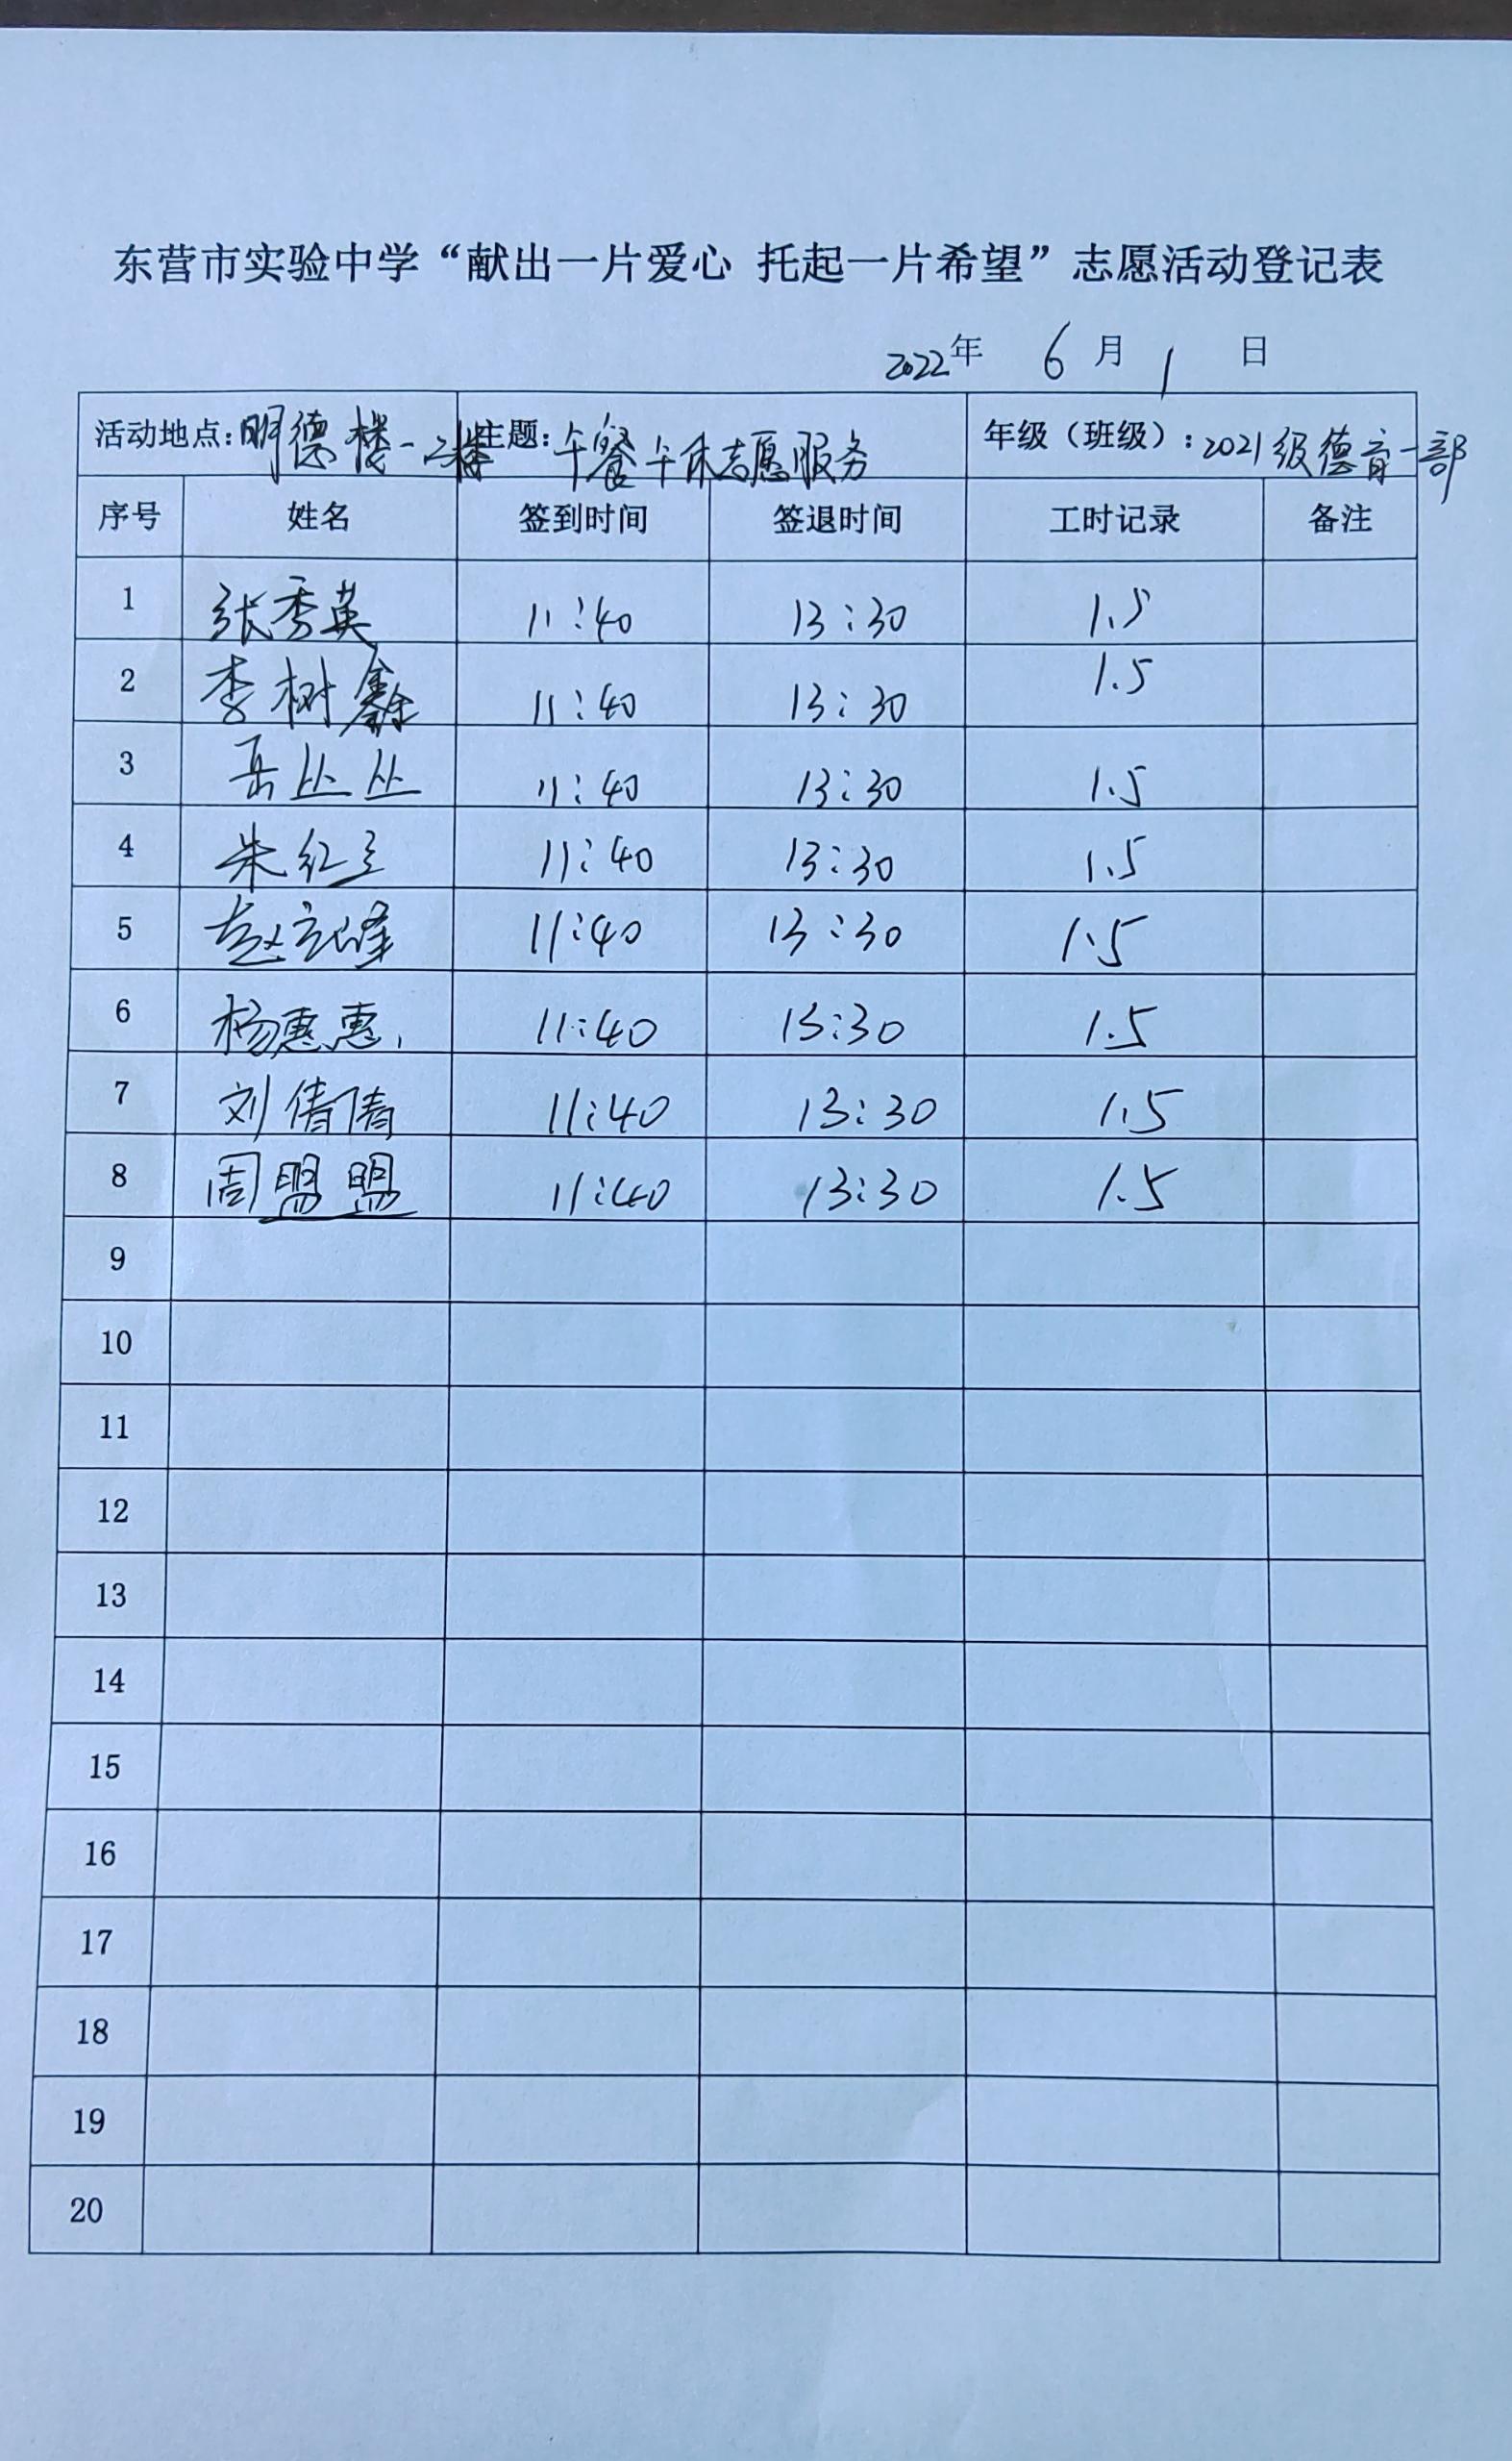 东营市实验中学“献出一片爱心 托起一片希望”志愿活动登记表
2022年 6月1日
活动地点:明德楼一二楼 主题:午餐午休志愿服务 年级（班级）:2021级德育一部
序号 姓名 签到时间 签退时间 工时记录 备注
1 张秀英 11:40 13:30 1.5
2 李树鑫 11:40 13:30 1.5
3 岳丛丛 11:40 13:30 1.5
4 朱红 11:40 13:30 1.5
5 赵立峰 11:40 13:30 1.5
6 杨惠惠 11:40 13:30 1.5
7 刘倩倩 11:40 13:30 1.5
8 周盟盟 11:40 13:30 1.5
9
10
11
12
13
14
15
16
17
18
19
20